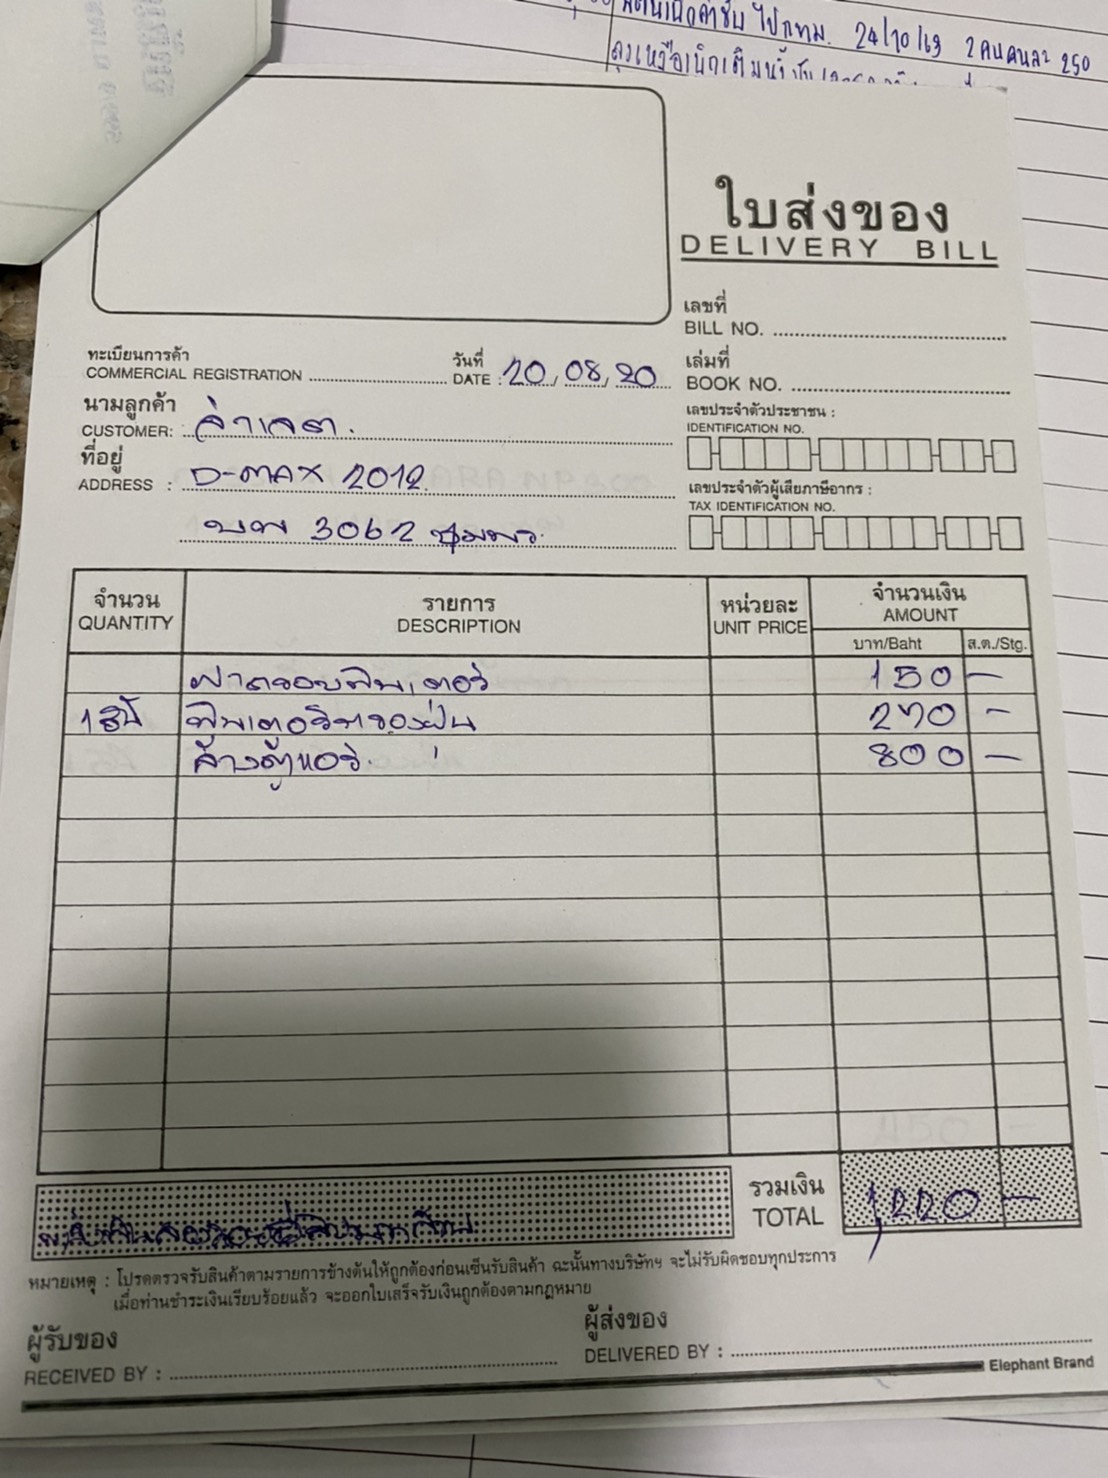 ไปกทม. 24/10/63 2 คนคนละ 250
ใบส่งของ
DELIVERY BILL
เลขที่
BILL NO.
ทะเบียนการค้า
COMMERCIAL REGISTRATION
วันที่
DATE : 20/08/20
เล่มที่
BOOK NO.
นามลูกค้า
CUSTOMER:
เลขประจำตัวประชาชน :
IDENTIFICATION NO.
ที่อยู่
ADDRESS : D-MAX 2012
เลขประจำตัวผู้เสียภาษีอากร :
TAX IDENTIFICATION NO.
บพ 3062 ชุมพร
จำนวน
QUANTITY
รายการ
DESCRIPTION
หน่วยละ
UNIT PRICE
จำนวนเงิน
AMOUNT
บาท/Baht ส.ต./Stg.
ฝาครอบฟิลเตอร์ 150 -
270 -
ล้างตู้แอร์ 800 -
รวมเงิน
TOTAL
1,220 -
หมายเหตุ : โปรดตรวจรับสินค้าตามรายการข้างต้นให้ถูกต้องก่อนเซ็นรับสินค้า ฉะนั้นทางบริษัทฯ จะไม่รับผิดชอบทุกประการ
เมื่อท่านชำระเงินเรียบร้อยแล้ว จะออกใบเสร็จรับเงินถูกต้องตามกฎหมาย
ผู้รับของ
RECEIVED BY :
ผู้ส่งของ
DELIVERED BY :
Elephant Brand